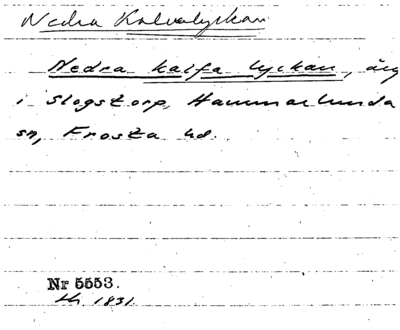 Nedra Kalvalyckan
Nedra kalfa lyckan, äng
i Slogstorp, Hammarlunda
sn, Frosta hd.
Nr 5553.
1831.